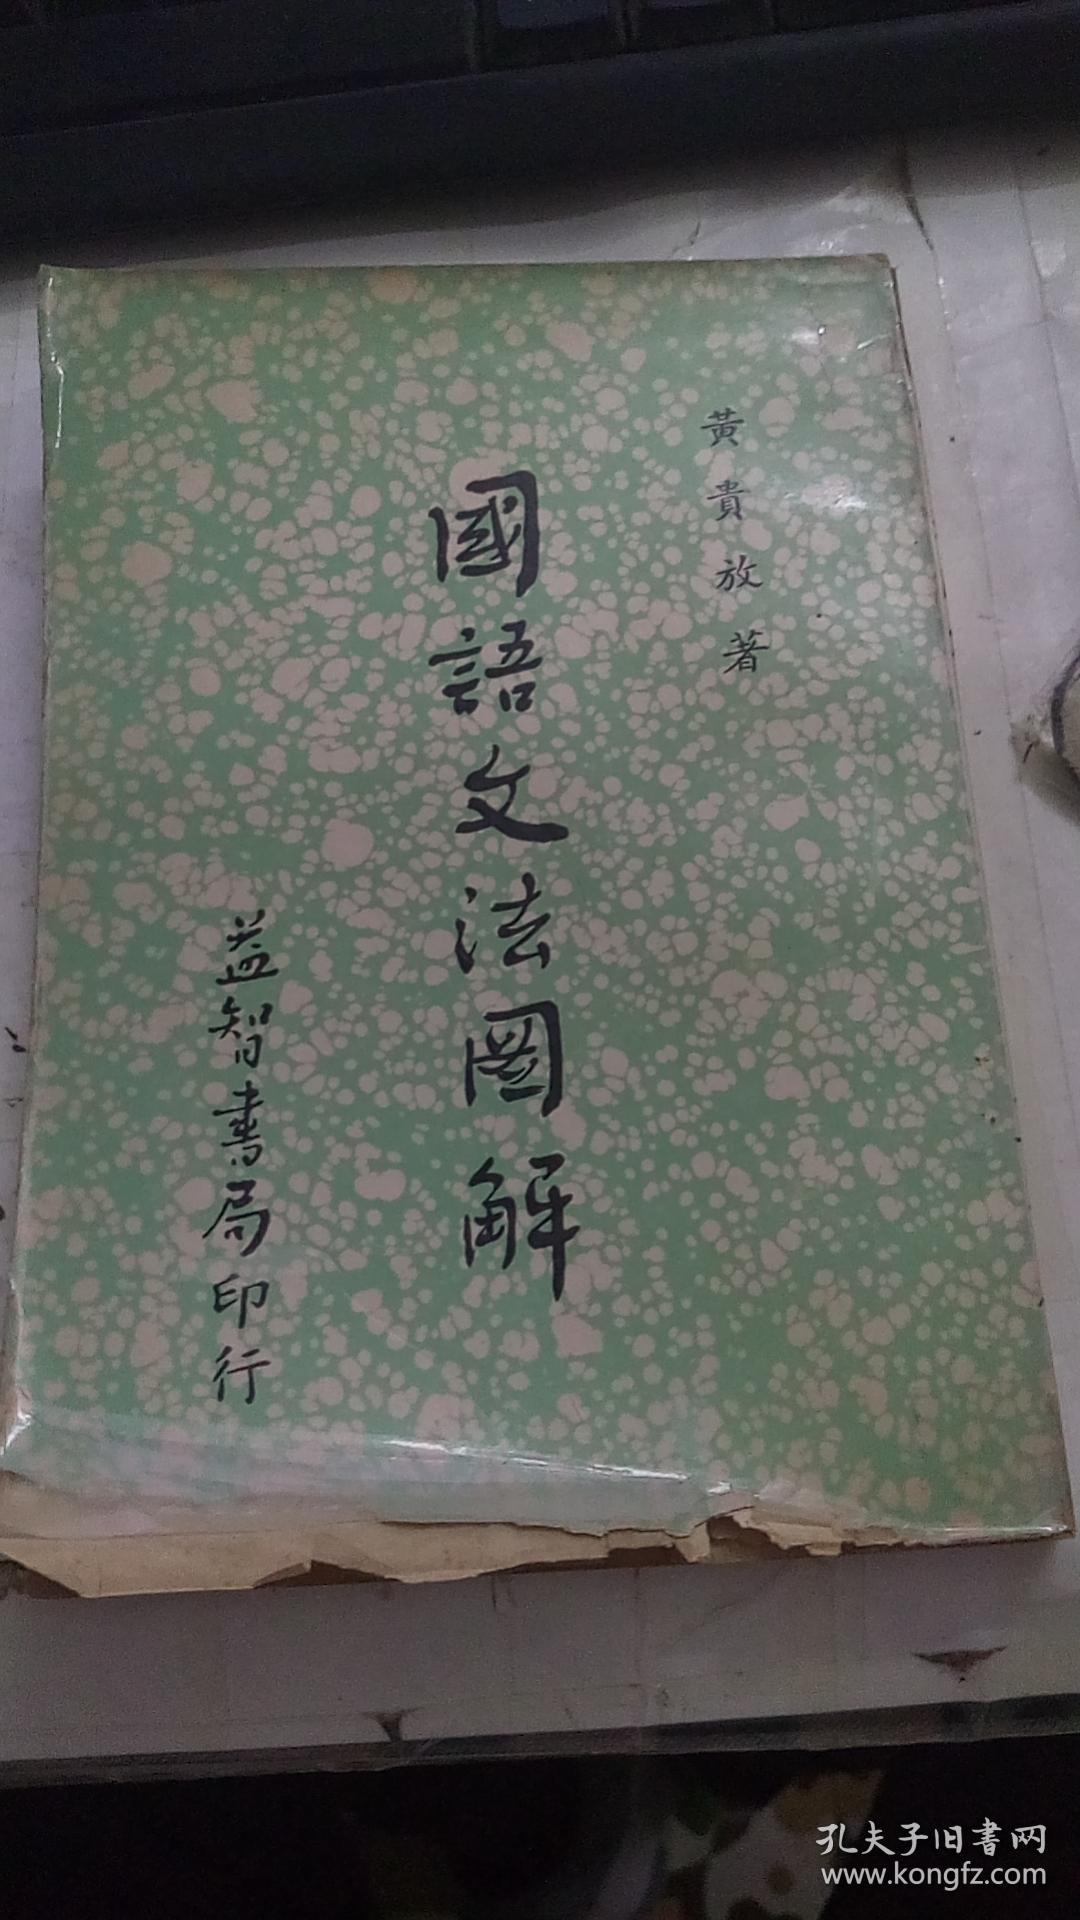 黃貴放著
國語文法圖解
益智書局印行
孔夫子旧書网
www.kongfz.com